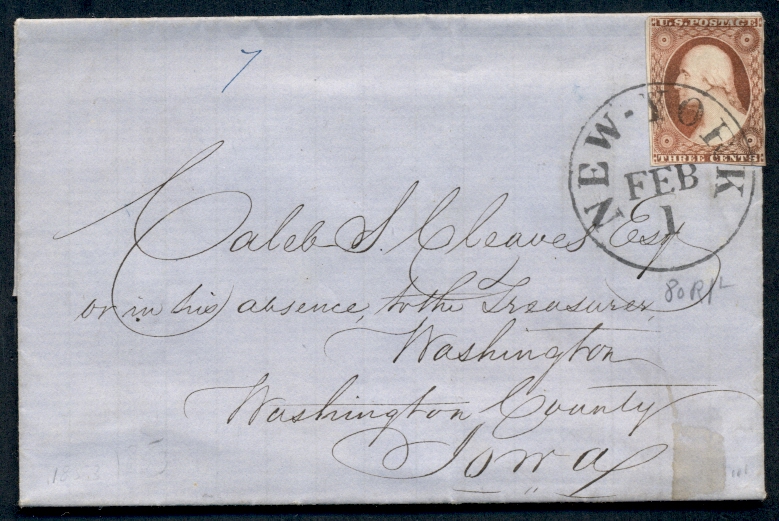 U.S. POSTAGE
THREE CENTS
7
NEW-YORK
FEB
1
Caleb S. Cleaves Esq
or in his absence, to the Treasurer,
80R1L
Washington
Washington County
Iowa